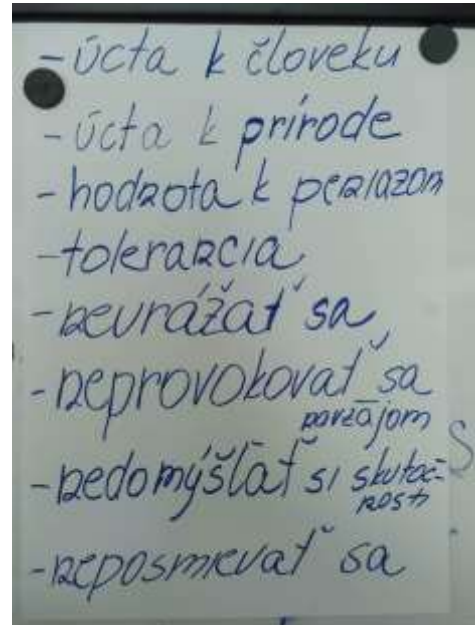 - úcta k človeku
- úcta k prírode
- hodnota k peniazom
- tolerancia
- neurážať sa
- neprovokovať sa
navzájom
- nedomýšľať si skutoč-
nosti
- neposmievať sa
S